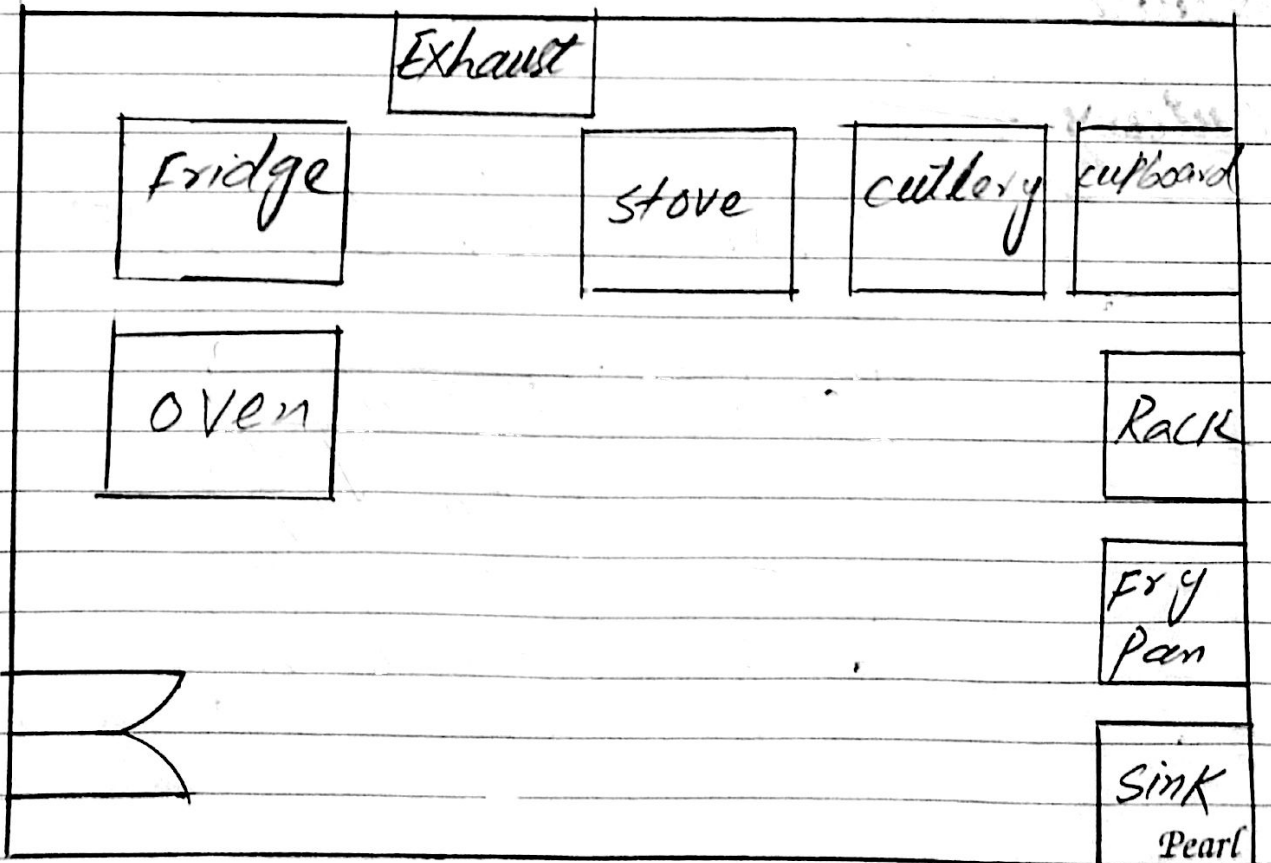 Exhaust
Fridge
stove
cutlery
cupboard
oven
Rack
Fry
Pan
Sink
Pearl